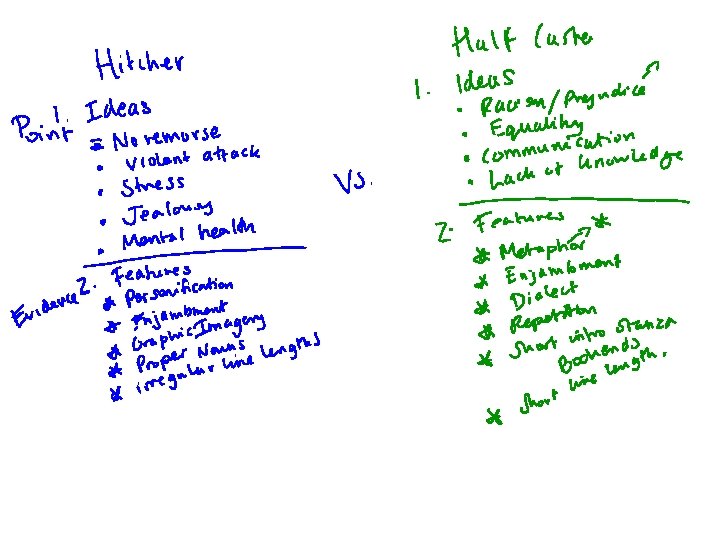 Hitcher
Point 1. Ideas
No remorse
• Violent attack
• Stress
• Jealousy
• Mental health
Evidence 2. Features
* Personification
* Enjambment
* Graphic Imagery
* Proper Nouns
* irregular line lengths
Vs.
Half Caste
1. Ideas
• Racism/Prejudice
• Equality
• Communication
• Lack of knowledge
2. Features *
* Metaphor
* Enjambment
* Dialect
* Repetition
* Short intro stanza
Bookends
* Short line length.